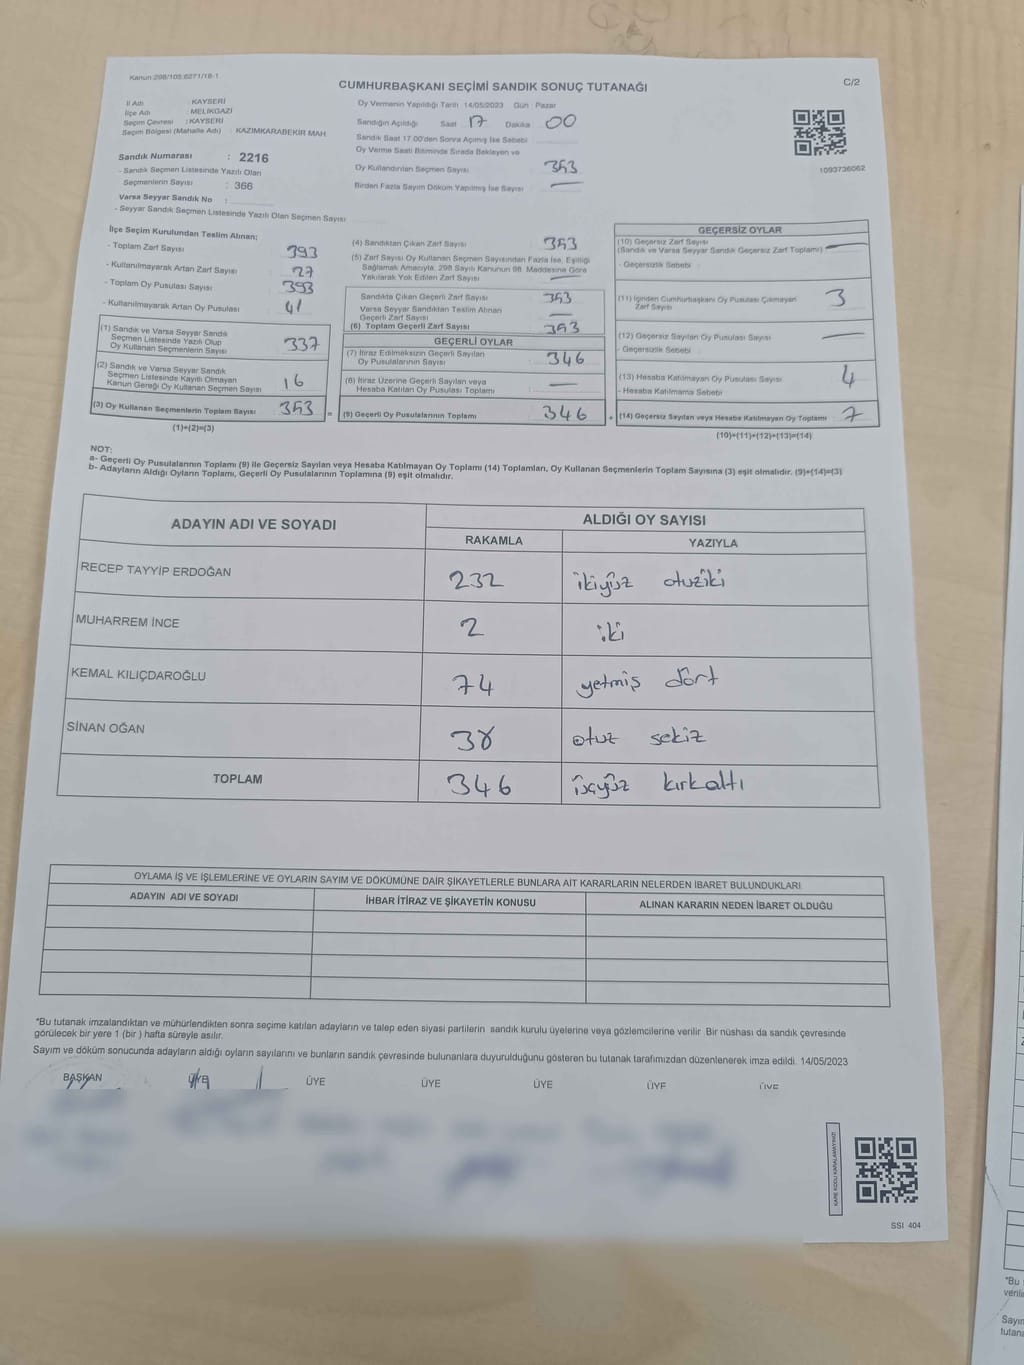 Kanun:298/105;6271/18-1
CUMHURBAŞKANI SEÇİMİ SANDIK SONUÇ TUTANAĞI
C/2
İl Adı : KAYSERİ
İlçe Adı : MELİKGAZİ
Seçim Çevresi : KAYSERİ
Seçim Bölgesi (Mahalle Adı) : KAZIMKARABEKİR MAH
Sandık Numarası : 2216
- Sandık Seçmen Listesinde Yazılı Olan
Seçmenlerin Sayısı : 366
Varsa Seyyar Sandık No :
- Seyyar Sandık Seçmen Listesinde Yazılı Olan Seçmen Sayısı
Oy Vermenin Yapıldığı Tarih 14/05/2023 Gün : Pazar
Sandığın Açıldığı Saat 17 Dakika 00
Sandık Saat 17.00'den Sonra Açılmış İse Sebebi
Oy Verme Saati Bitiminde Sırada Bekleyen ve
Oy Kullandırılan Seçmen Sayısı 353
Birden Fazla Sayım Döküm Yapılmış İse Sayısı —
1093736062
İlçe Seçim Kurulundan Teslim Alınan;
- Toplam Zarf Sayısı 393
- Kullanılmayarak Artan Zarf Sayısı 27
- Toplam Oy Pusulası Sayısı 393
- Kullanılmayarak Artan Oy Pusulası 41
(1) Sandık ve Varsa Seyyar Sandık
Seçmen Listesinde Yazılı Olup
Oy Kullanan Seçmenlerin Sayısı 337
(2) Sandık ve Varsa Seyyar Sandık
Seçmen Listesinde Kayıtlı Olmayan
Kanun Gereği Oy Kullanan Seçmen Sayısı 16
(3) Oy Kullanan Seçmenlerin Toplam Sayısı 353
(1)+(2)=(3)
(4) Sandıktan Çıkan Zarf Sayısı 353
(5) Zarf Sayısı Oy Kullanan Seçmen Sayısından Fazla İse, Eşitliği
Sağlamak Amacıyla, 298 Sayılı Kanunun 98. Maddesine Göre
Yakılarak Yok Edilen Zarf Sayısı —
Sandıkta Çıkan Geçerli Zarf Sayısı 353
Varsa Seyyar Sandıktan Teslim Alınan
Geçerli Zarf Sayısı —
(6) Toplam Geçerli Zarf Sayısı 353
GEÇERLİ OYLAR
(7) İtiraz Edilmeksizin Geçerli Sayılan
Oy Pusulalarının Sayısı 346
(8) İtiraz Üzerine Geçerli Sayılan veya
Hesaba Katılan Oy Pusulası Toplamı —
= (9) Geçerli Oy Pusulalarının Toplamı 346
GEÇERSİZ OYLAR
(10) Geçersiz Zarf Sayısı
(Sandık ve Varsa Seyyar Sandık Geçersiz Zarf Toplamı) —
- Geçersizlik Sebebi :
(11) İçinden Cumhurbaşkanı Oy Pusulası Çıkmayan
Zarf Sayısı 3
(12) Geçersiz Sayılan Oy Pusulası Sayısı —
- Geçersizlik Sebebi :
(13) Hesaba Katılmayan Oy Pusulası Sayısı 4
- Hesaba Katılmama Sebebi
+ (14) Geçersiz Sayılan veya Hesaba Katılmayan Oy Toplamı 7
(10)+(11)+(12)+(13)=(14)
NOT:
a- Geçerli Oy Pusulalarının Toplamı (9) ile Geçersiz Sayılan veya Hesaba Katılmayan Oy Toplamı (14) Toplamları, Oy Kullanan Seçmenlerin Toplam Sayısına (3) eşit olmalıdır. (9)+(14)=(3)
b- Adayların Aldığı Oyların Toplamı, Geçerli Oy Pusulalarının Toplamına (9) eşit olmalıdır.
ADAYIN ADI VE SOYADI
ALDIĞI OY SAYISI
RAKAMLA YAZIYLA
RECEP TAYYİP ERDOĞAN 232 ikiyüz otuziki
MUHARREM İNCE 2 iki
KEMAL KILIÇDAROĞLU 74 yetmiş dört
SİNAN OĞAN 38 otuz sekiz
TOPLAM 346 üçyüz kırkaltı
OYLAMA İŞ VE İŞLEMLERİNE VE OYLARIN SAYIM VE DÖKÜMÜNE DAİR ŞİKAYETLERLE BUNLARA AİT KARARLARIN NELERDEN İBARET BULUNDUKLARI
ADAYIN ADI VE SOYADI İHBAR İTİRAZ VE ŞİKAYETİN KONUSU ALINAN KARARIN NEDEN İBARET OLDUĞU
*Bu tutanak imzalandıktan ve mühürlendikten sonra seçime katılan adayların ve talep eden siyasi partilerin sandık kurulu üyelerine veya gözlemcilerine verilir Bir nüshası da sandık çevresinde
görülecek bir yere 1 (bir ) hafta süreyle asılır.
Sayım ve döküm sonucunda adayların aldığı oyların sayılarını ve bunların sandık çevresinde bulunanlara duyurulduğunu gösteren bu tutanak tarafımızdan düzenlenerek imza edildi. 14/05/2023
BAŞKAN ÜYE ÜYE ÜYE ÜYE ÜYE ÜYE
KARE KODU KARALAMAYINIZ!
SSI 404
"Bu
Sayım
tutana